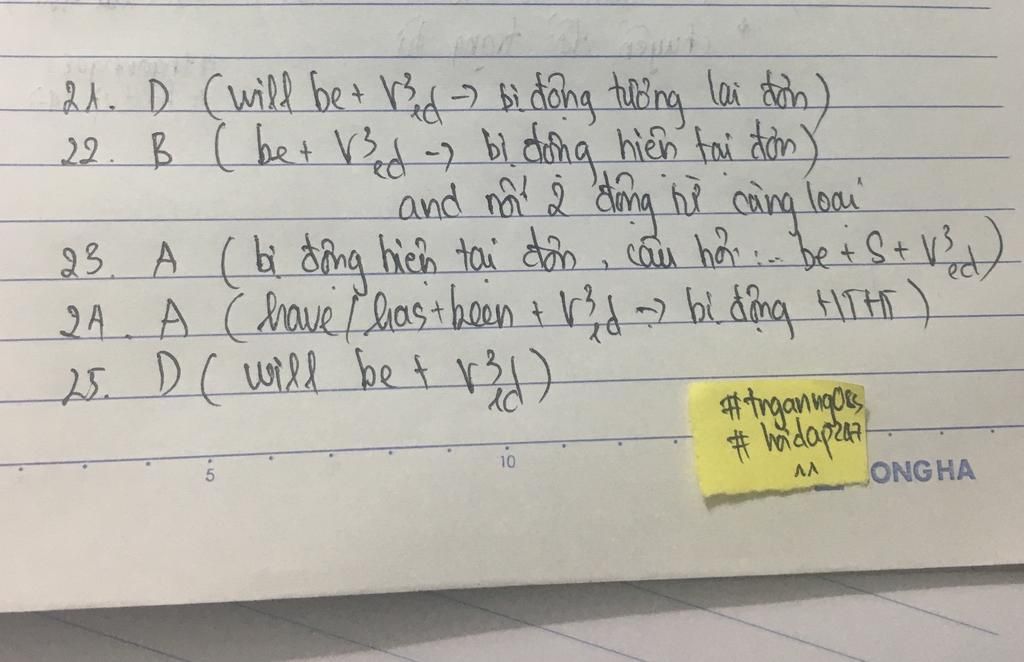 21. D (will be + V3/ed → bị động tương lai đơn)
22. B (be + V3/ed → bị động hiện tại đơn)
and nối 2 động từ cùng loại
23. A (bị động hiện tại đơn, câu hỏi: .. be + S + V3/ed)
24. A (have/has + been + V3/ed → bị động HTHT)
25. D (will be + V3/ed)
#hoidap247
^^
5 10
ONGHA